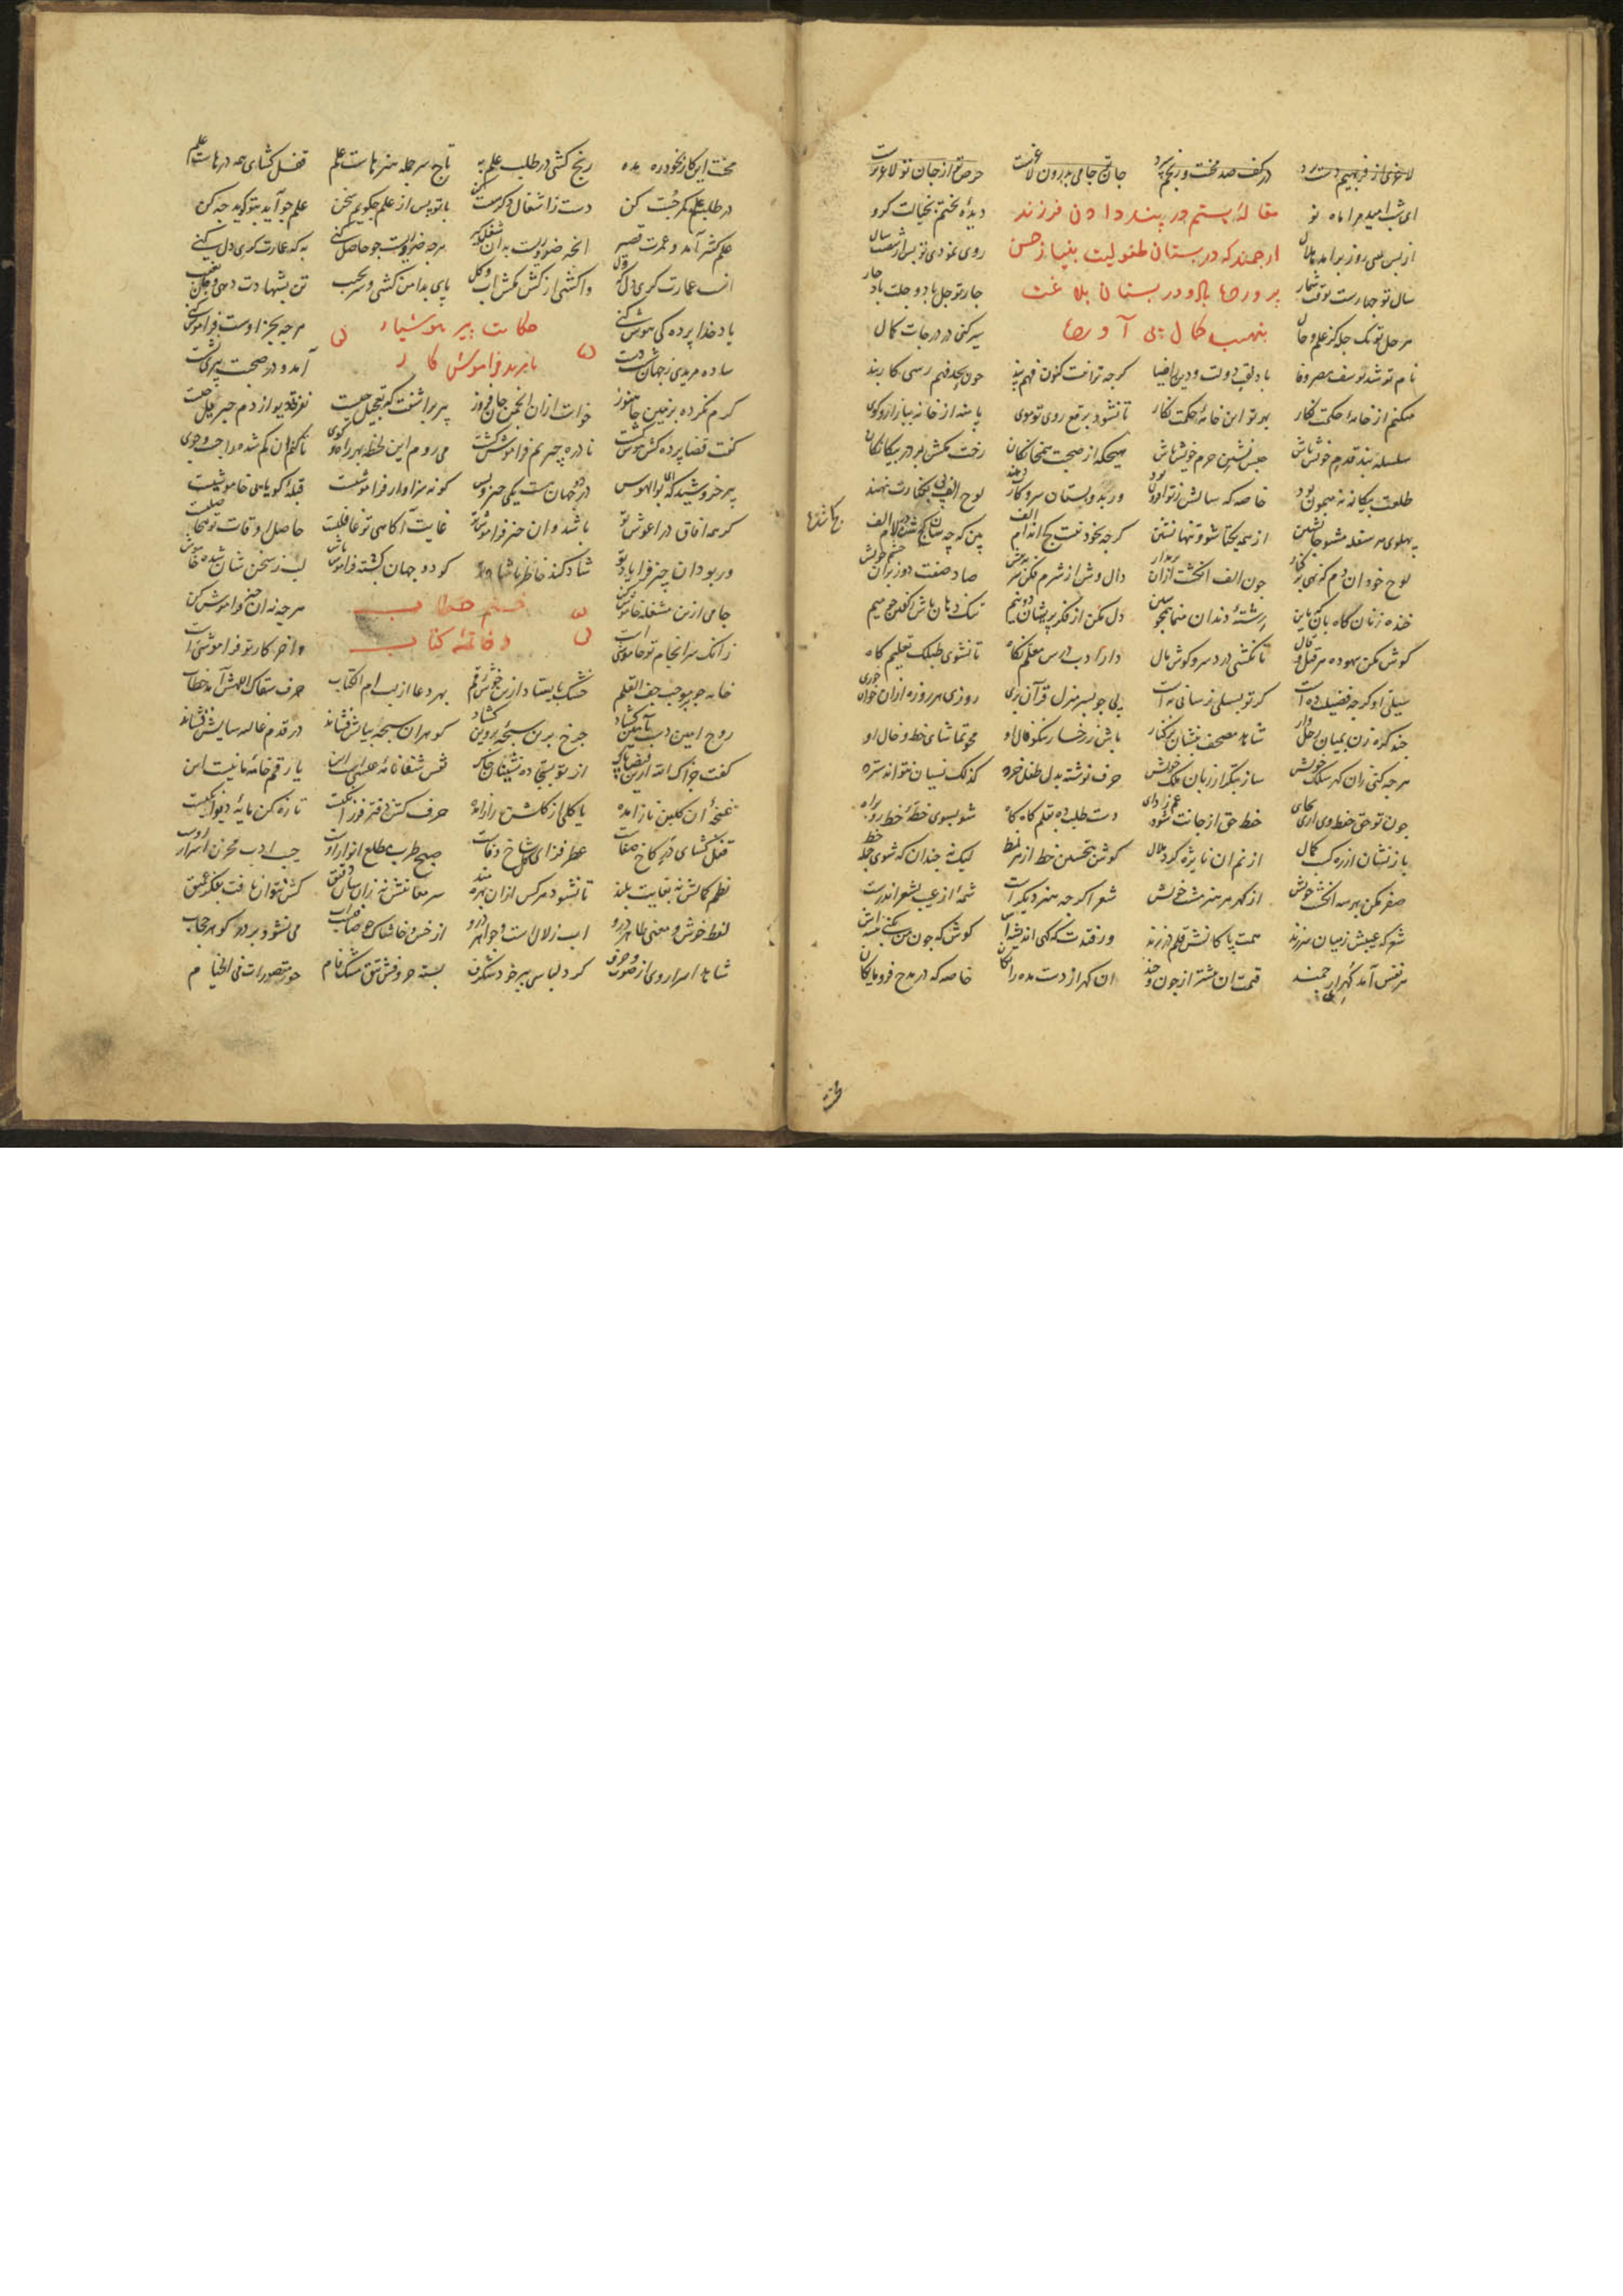 لاغری از فربهیم دست برد در کف صد محنت و رنجم سپرد جان جامی بدرون لاغرست حرص تو از جان تو لاغرترست
ای شب امید مرا ماه نو مقالهٔ بیستم در پند دادن فرزند دیدهٔ بختم بخیالت گرو
از پس سی روز برآمد هلال ارجمند که در بستان طفولیت بنیاز حسن روی نمودی تو پس از شصت سال
سال تو چهارست بوقت شمار پرورش یابد و در بستان بلاغت چار تو چل باد و چلت باد چار
هر چل تو یک چله کز علم و حال بنصیب کمال پی آورد سیر کنی در درجات کمال
نام تو شد یوسف مصر وفا باد لقب دولت و دین را ضیا گرچه ترا نیست کنون فهم پند چون بحد فهم رسی کار بند
میکنم از خامهٔ حکمت نگار بهر تو این خانهٔ حکمت نگار تا نشود برقع روی تو موی پا منه از خانه ببازار و کوی
سلسله بند قدم خویش باش حبس نشین حرم خویش باش هیچگه از صحبت همخانگان رخت مکش بر در بیگانگان
طلعت بیگانه نه میمون بود خاصه که سالش ز تو افزون بود ور بدبستان سر و کارت دهند لوح الف بی بکنارت نهند
پهلوی هر سفله مشو جانشین از همه یکتا شو و تنها نشین گرچه بخود نیست کج اندام الف بین که چه سان کج شده در لام الف
لوح خود آن دم که نهی بر کنار چون الف انگشت از آن بر مدار دال وش از شرم فکن سر به پیش صاد صفت دوز بر آن چشم خویش
خنده زنان گاه بآن گه باین رشتهٔ دندان منما همچو سین دل مکن از فکر پریشان دو نیم تنگ دهان باش ز گفتن چو میم
گوش مکن بیهوده هر قیل و قال تا نکشی درد سر و گوش مال دار ادب درس معلم نگاه تا نشوی طبلک تعلیم گاه
سیلی او گرچه فضیلت ده است گر تو بسیلی نرسانی به است پی چو بسر منزل قرآن بری روزی هر روزه از آن خوان خوری
باش ز رخسار نکو فال او محو تماشای خط و خال او
هر چه کنی زان گهر سلک خویش ساز بتکرار زبان ملک خویش حرف نوشته بدل طفل خرد گزلک نسیان نتواند سترد
چون تو حق حفظ وی آری بجای خط حق از جانت شود غم زدای دست طلب ده بقلم گاه گاه شو بسوی خطهٔ خط رو براه
باز نشان از رگ کمال از نم آن نایژه گرد ملال گوش بتحسین خط از هر نمط لیک نه چندان که شوی جمله خط
صفر مکن بهر سه انگشت خویش از گهر هر هنری مشت خویش شعر اگرچه هنر دیگر است شمه‌ای از عیب بشعر اندرست
شعر که عیبش ز میان سر زند همت پاکانش قلم در زند ور فتدت گه گهی اندیشه‌اش کوش که چون من نکنی پیشه‌اش
هر نفس آمد گهر ارجمند قیمت آن بیشتر از چون و چند آن گهر از دست مده رایگان خاصه که در مدح فرومایگان
محنت این کار بخود ره مده رنج کشی در طلب علم به تاج سر جمله هنرهاست علم قفل گشای همه درهاست علم
در طلب علم کمر چست کن دست ز اشغال دگر سست کن با تو پس از علم چگویم سخن علم چو آید بتو گوید چه کن
علم کثیر آمد و عمرت قصیر آنچه ضروریست بدان شغل گیر هر چه ضروریست چو حاصل کنی به که عمارت گری دل کنی
واکشی از کش مکش آب و گل پای بدامن کشی و سر بجیب تن بشهادت دهی و جان بغیب
یاد خدا پرده کش هوش کنی حکایت پیر هوشیار هر چه بجز اوست فراموش کنی
ساده مریدی ز جهان شست دست با مرید فراموش کار آمد و در صحبت پیری نشست
گرم نکرده بزمین جا هنوز خواست از آن انجمن جان فروز پیر برآشفت که تعجیل چیست نفرت دیو از دم جبریل چیست
گفت قضا پرده کش هوش گشت نادره چیزیم فراموش گشت می روم این لحظه بهر راه و کوی تا کنم آن گم شده را جست و جوی
پیر خروشید که ای بوالهوس در دو جهان هست یکی چیز و بس کو نه سزاوار فراموشیست قبلهٔ گویایی و خاموشیست
گر همه آفاق در آغوش تو باشد و آن چیز فراموش تو غایت آگاهی تو غافلیست حاصل اوقات تو بیحاصلیست
ور بود آن چیز فرا یاد تو شاد کند خاطر ناشاد تو گو دو جهان گشته فراموش باش لب ز سخن شان شده خاموش باش
جامی ازین مشغله خاموش کن ختم خطاب هر چه نه آن چیز فراموش کن
زانکه سرانجام تو خاموشی است و خاتمهٔ کتاب و آخر کار تو فراموشی است
خامه چو بر موجب جف القلم خشک بایستاد ازین خوش رقم بهر دعا از لب ام الکتاب حرف سقاک اللهش آمد خطاب
روح امین دست بآمین گشاد چرخ برین سبحهٔ پروین گشاد گوهر آن سبحه بپایش فشاند در قدم غالیه سایش فشاند
گفت جزاک الله ازین فیض پاک از تو بسجاده نشینان خاک نفس شفاخانهٔ عیسیست این یا رقم خانهٔ مانیست این
غنچه‌ای از گلبن ناز آمده یا گلی از گلشن راز آمده حرف کش دفتر فرزانگیست تازه کن مایهٔ دیوانگیست
قفل گشای در کاخ صفات عطر فزای گل شاخ حیات صبح طرب مطلع انوار اوست جیب ادب مخزن اسرار اوست
نظم کمالش نه بغایت بلند تا نشود هر کس از آن بهره مند سر معانیش نه زان سان دقیق کش نتوان یافت بفکر عمیق
لفظ خوش و معنی ظاهر درو آب زلالست و جواهر درو از خس و خاشاک چو صافیست آب می نشود بر در و گوهر حجاب
شاهد اسرار وی از صوت و حرف کرد لباسی ببر خود شگرف بسته حروفش تتق مشک فام حور مقصورات فی الخیام